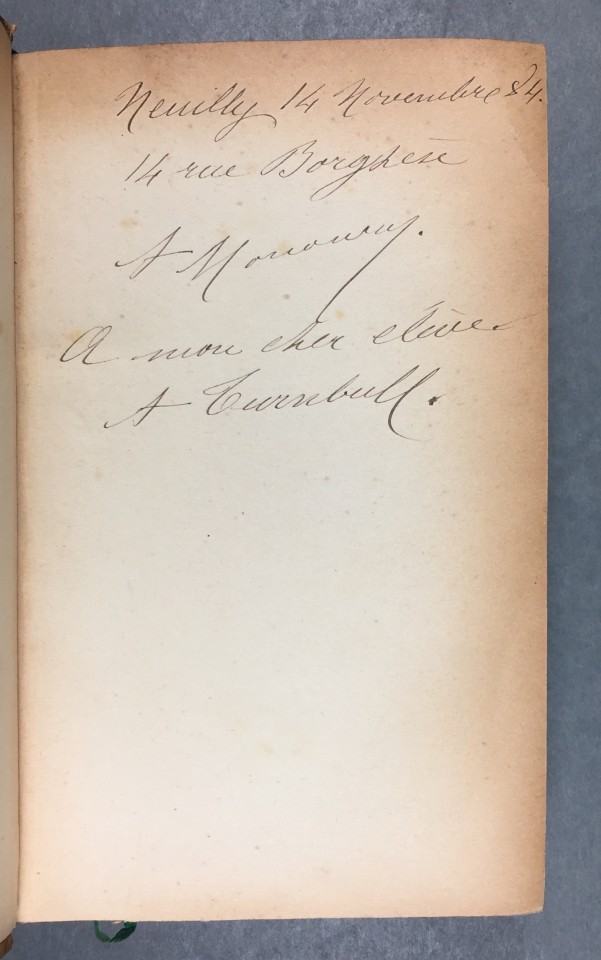 Neuilly 14 Novembre 84.
14 rue Borghèse
A
A mon cher élève
A Turnbull.